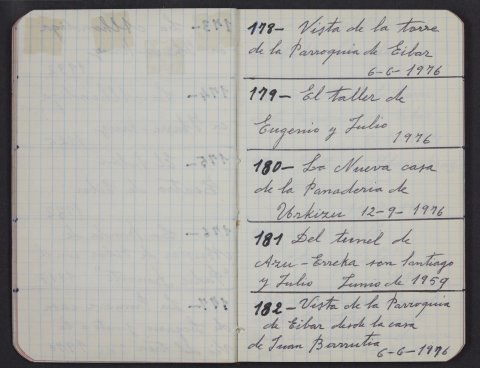 178- Vista de la torre
de la Parroquia de Eibar
6-6-1976
179- El taller de
Eugenio y Julio
1976
180- La Nueva casa
de la Panaderia de
Urkizu 12-9-1976
181 Del tunel de
Azu-Erreka son Santiago
y Julio Junio de 1959
182- Vista de la Parroquia
de Eibar desde la casa
de Juan Berrutia
6-6-1976